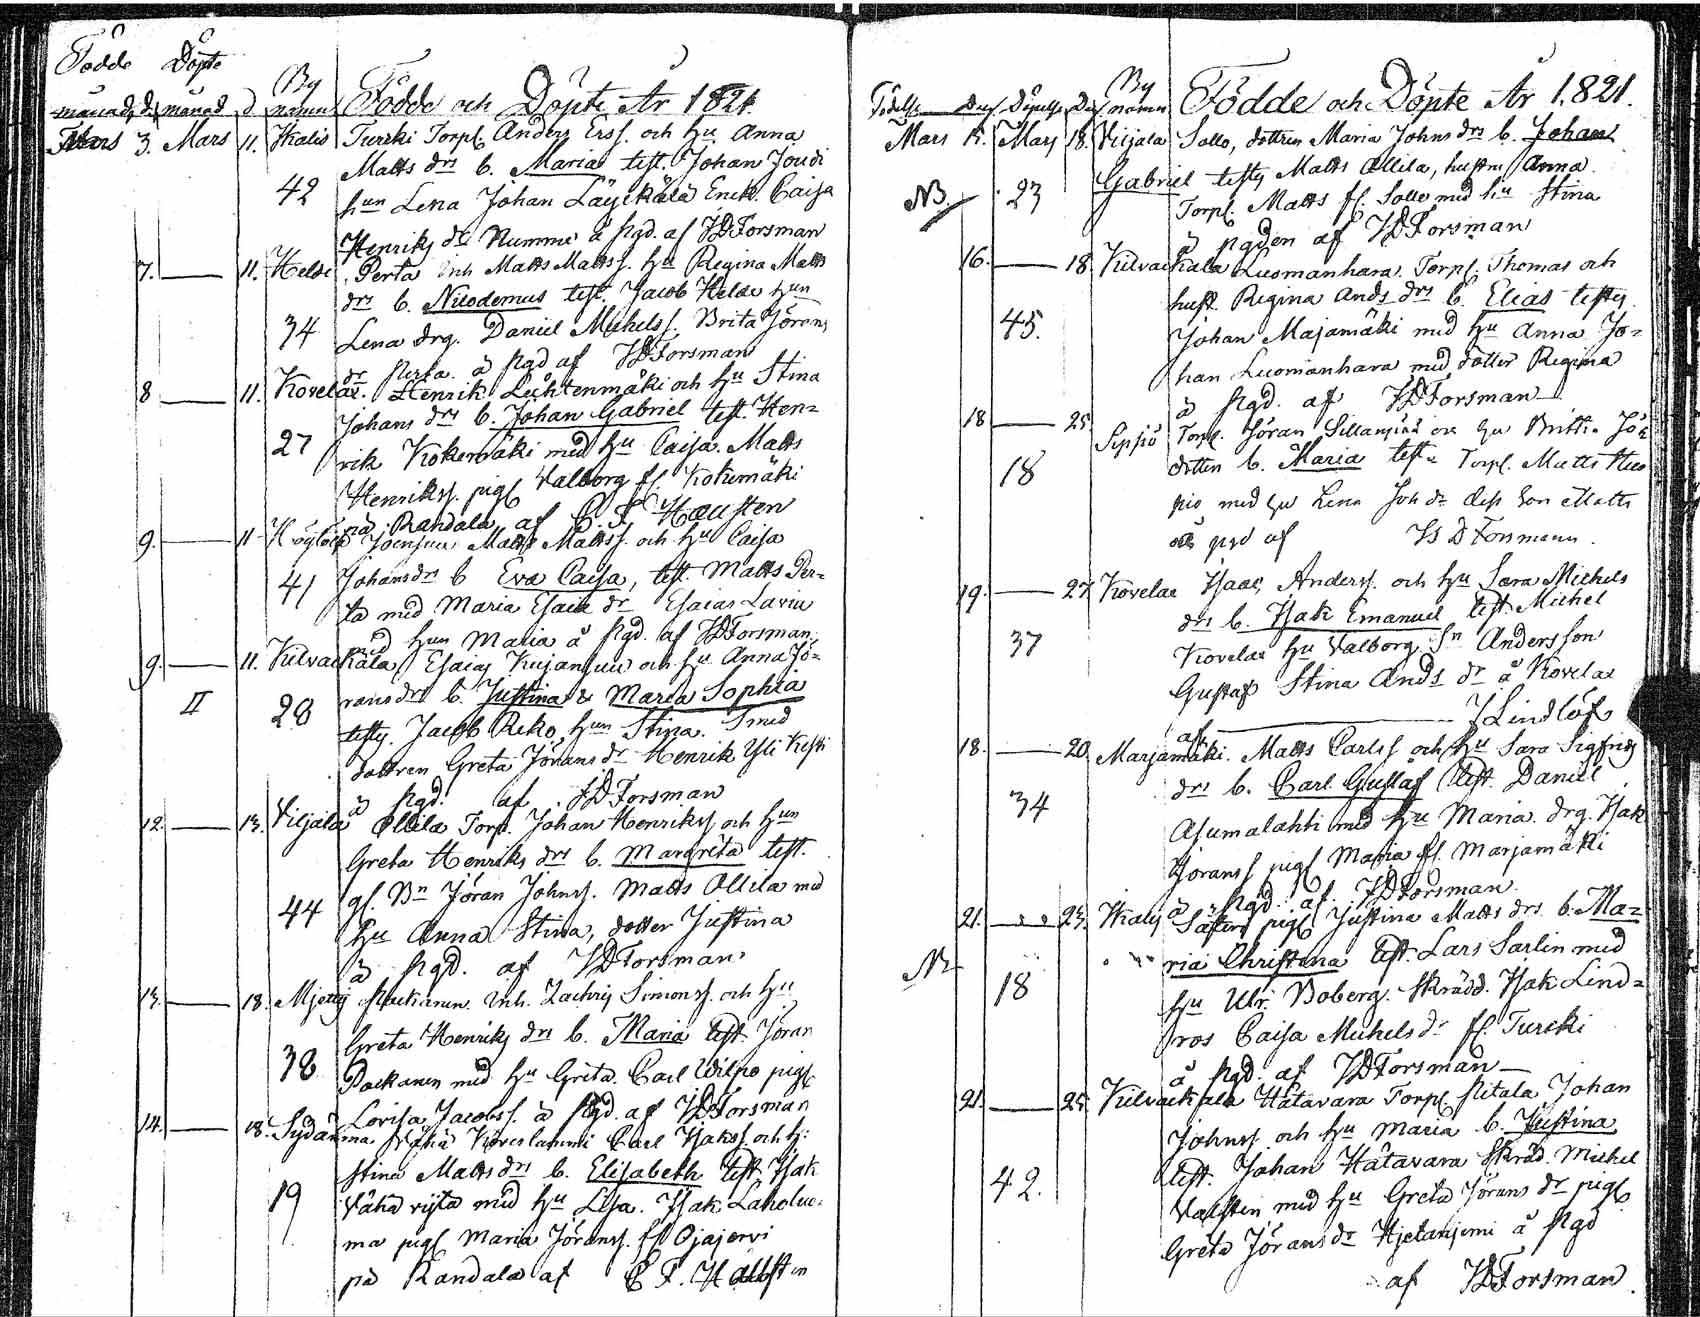 Födde Döpte
månad d. månad d By namn Födde och Döpte År 1821.
Mars 3. Mars 11. Ikalis Turcki Torp. Anders Erss. och hu Anna
Matts drs b. Maria test. Johan Joudi
42 hun Lena Johan Läyckälä Enck. Caisa
Henriks dr Numme å Pgd. af JD Forsman
7. — 11. Helde Perta Inh Matts Matss. hu Regina Matts
drs b. Nicodemus test. Jacob Helde hun
34 Lena drg. Daniel Michelss. Brita Jörans
dr Perta å Pgd af JD Forsman
8 — 11. Kovelax. Henrik Lechtenmäki och hu Stina
Johans drs b. Johan Gabriel test. Hen=
27 rik Kokemäki med hu Caisa Matts
Henrikss. pig. Valborg fr. Kokemäki
på Randala af C F Hausten
9. — 11 Matts Mattss. och hu Caisa
41 Johansdrs b Eva Caisa, test. Matts Per=
ta med Maria Esaiæ dr Esaias Laviu
med hun Maria å Pgd. af JD Forsman.
9. — 11. Kilvackala Esaias Kujansuu och hu Anna Jö=
II 28 ransdrs b. Justina & Maria Sophia
testes. Jacob Reko, hun Stina. Smed
dottren Greta Jöransdr Henrik Yli Kesti
å Pgd. af JD Forsman
12. — 13. Viljala Ollila Torp. Johan Henrikss och hun
Greta Henriks drs b. Margreta test.
44 gl. Bn Jöran Johnss. Matts Ollila med
hu Anna Stina, dotter Justina
å Pgd. af JD Forsman
13. — 18. Mjettis Packanen Inh. Zachris Simonss. och hu
Greta Henriks drs b. Maria test. Jöran
38 Packanen med hu Greta. Carl Wilpo pig.
Lovisa Jacobss. å Pgd. af JD Forsman
14. — 18. Sydänma Vähä Koveslammi Carl Isakss. och h:
Stina Mattsdrs b. Elisabeth test. Isak
19 Vähä rijta med hu Lisa. Isak Laholuo=
ma pig. Maria Jöranss. fr Ojajervi
på Randala af C F. Hällsten
Födelse Dag Döpelse Dag By namn Födde och Döpte År 1821.
Mars 15. Mars 18. Viljala Sallo, dottren Maria Johns drs b. Johan
NB 23 Gabriel testes Matts Ollila, hustru Anna
Torp. Matts fr. Sallo med hu Stina
å Pgden af JD Forsman
16. — 18. Kilvackala Luomanhara Torp. Thomas och
hust. Regina Ands drs b. Elias testes
45. Johan Majamäki med hu Anna Jo=
han Luomanhara med dotter Regina
å Pgd. af JD Forsman
18 — 25. Sippiö Torp. Jöran Sillanpää och hu Britta Jö=
18 dotten b. Maria test. Torp. Matts
piö med hu Lena Joh dr dess son Matts
å Pgd af JD Forsmann.
19. — 27. Kovelax Isaac Anderss. och hu Sara Michels
drs b. Isak Emanuel test. Michel
37 Kovelax hu Valborg. Sn Andersson
Gustaf Stina Ands dr å Kovelax
af — J Lindlöf
18. — 20. Marjamäki. Matts Carlss och hu Sara Sigfrids
drs b. Carl Gustaf test. Daniel
34 Asumalahti med hu Maria. drg. Isak
Jöranss pig. Maria fr. Marjamäki
å Pgd. af. JD Forsman.
21. — 23. Ikalis Säfen pig. Justina Matts drs b. Ma=
NB ria Christina test. Lars Sarlin med
18 hu Ulr. Boberg. Skrädd. Isak Lind=
ros Caisa Michels dr fr. Turcki
å Pgd. af JD Forsman
21. — 25. Kilvackala Hatavara Torp. Pitala Johan
Johnss och hu Maria b. Justina
42. test. Johan Hatavara Skräd. Michel
Valsten med hu Greta Jörans dr pig.
Greta Jöransdr Hjetaniemi å Pgd
af JD Forsman.